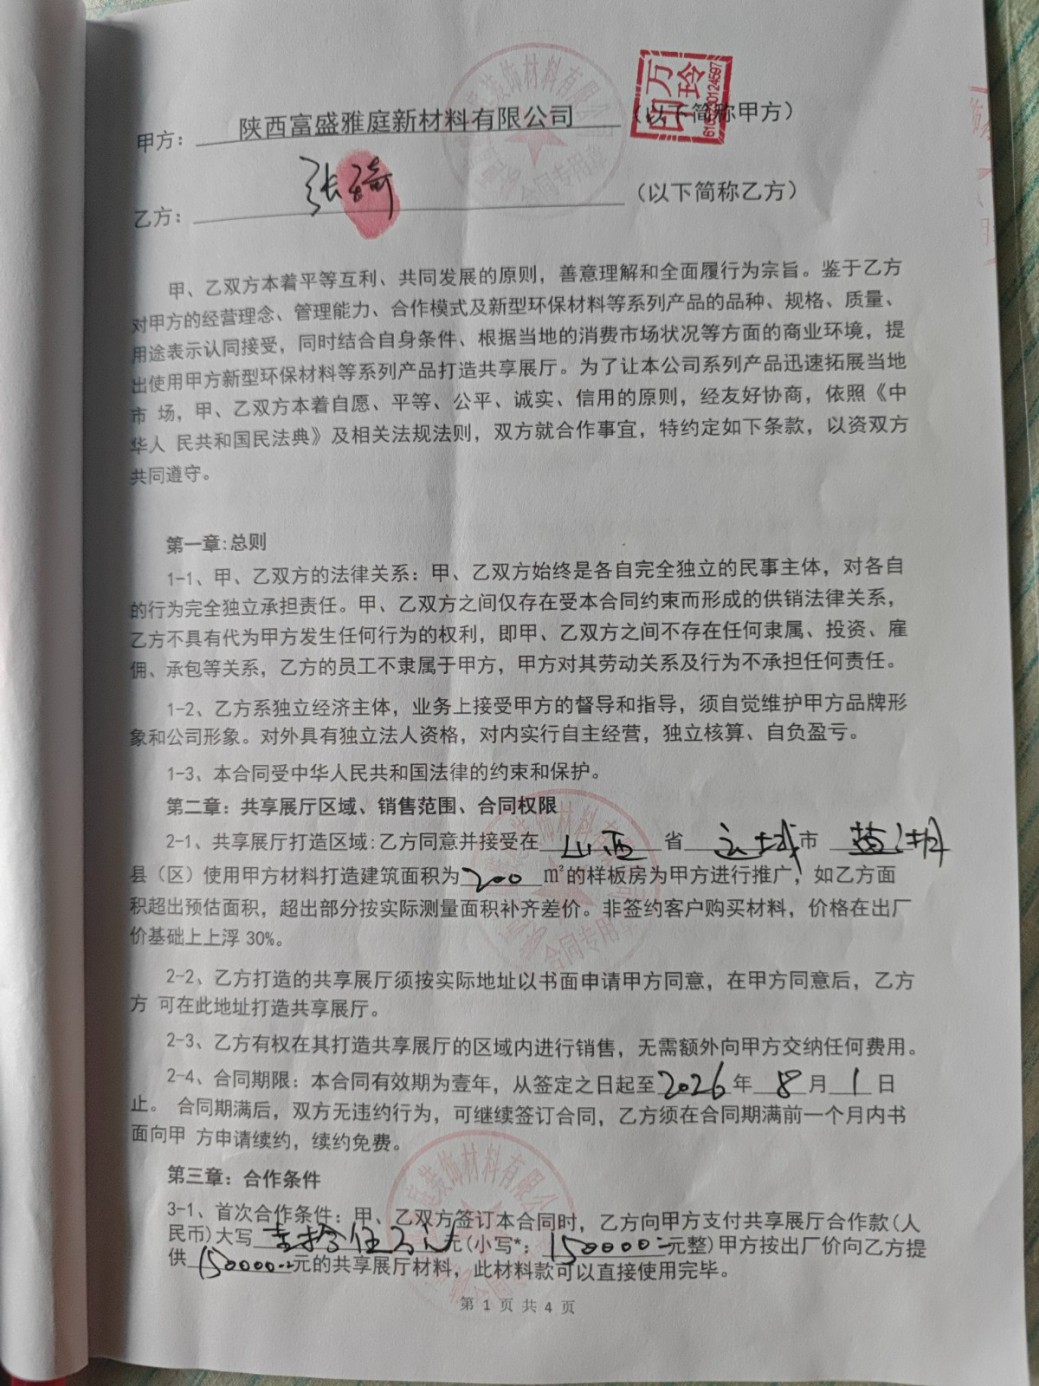 甲方： 陕西富盛雅庭新材料有限公司 （以下简称甲方）
万玲印
乙方： 张琦 （以下简称乙方）
甲、乙双方本着平等互利、共同发展的原则，善意理解和全面履行为宗旨。鉴于乙方
对甲方的经营理念、管理能力、合作模式及新型环保材料等系列产品的品种、规格、质量、
用途表示认同接受，同时结合自身条件、根据当地的消费市场状况等方面的商业环境，提
出使用甲方新型环保材料等系列产品打造共享展厅。为了让本公司系列产品迅速拓展当地
市 场，甲、乙双方本着自愿、平等、公平、诚实、信用的原则，经友好协商，依照《中
华人 民共和国民法典》及相关法规法则，双方就合作事宜，特约定如下条款，以资双方
共同遵守。
第一章:总则
1-1、甲、乙双方的法律关系：甲、乙双方始终是各自完全独立的民事主体，对各自
的行为完全独立承担责任。甲、乙双方之间仅存在受本合同约束而形成的供销法律关系，
乙方不具有代为甲方发生任何行为的权利，即甲、乙双方之间不存在任何隶属、投资、雇
佣、承包等关系，乙方的员工不隶属于甲方，甲方对其劳动关系及行为不承担任何责任。
1-2、乙方系独立经济主体，业务上接受甲方的督导和指导，须自觉维护甲方品牌形
象和公司形象。对外具有独立法人资格，对内实行自主经营，独立核算、自负盈亏。
1-3、本合同受中华人民共和国法律的约束和保护。
第二章：共享展厅区域、销售范围、合同权限
2-1、共享展厅打造区域:乙方同意并接受在 山西 省 运城 市
县（区）使用甲方材料打造建筑面积为 200 ㎡的样板房为甲方进行推广，如乙方面
积超出预估面积，超出部分按实际测量面积补齐差价。非签约客户购买材料，价格在出厂
价基础上上浮 30%。
2-2、乙方打造的共享展厅须按实际地址以书面申请甲方同意，在甲方同意后，乙方
方 可在此地址打造共享展厅。
2-3、乙方有权在其打造共享展厅的区域内进行销售，无需额外向甲方交纳任何费用。
2-4、合同期限：本合同有效期为壹年，从签定之日起至 2026 年 8 月 1 日
止。 合同期满后，双方无违约行为，可继续签订合同，乙方须在合同期满前一个月内书
面向甲 方申请续约，续约免费。
第三章：合作条件
3-1、首次合作条件：甲、乙双方签订本合同时，乙方向甲方支付共享展厅合作款(人
民币)大写 壹拾伍万元 元(小写*： 150000 元整)甲方按出厂价向乙方提
供 150000 元的共享展厅材料，此材料款可以直接使用完毕。
第 1 页 共 4 页